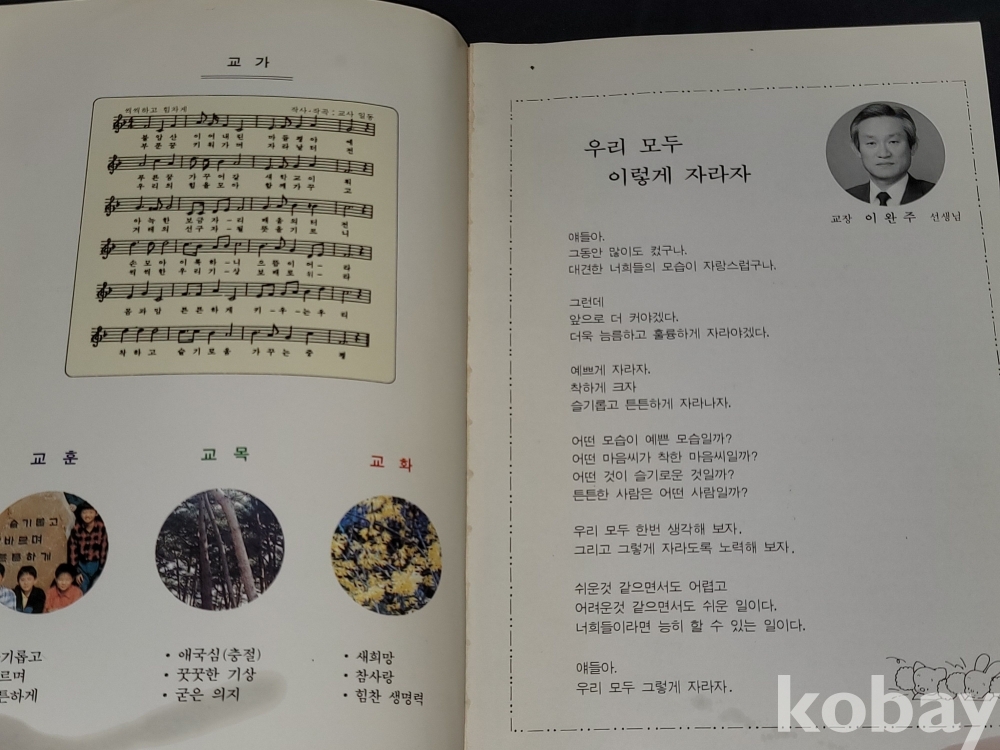 교 가
씩씩하고 힘차게
작사·작곡 : 교사 일동
불암산 이어내린 마들평야 에
푸른꿈 키워가며 자라날터 전
푸른꿈 가꾸어갈 새학교이 뤄
우리의 힘을모아 함께가꾸 고
아늑한 보금자-리 배움의터 전
겨레의 선구자-될 뜻을기르 니
손모아 이룩하-니 으뜸이어-라
씩씩한 우리기-상 보배로되-라
몸과맘 튼튼하게 키-우-는우 리
착하고 슬기로움 가꾸는중 평
교 훈
교 목
교 화
슬기롭고
바르며
튼튼하게
기롭고
르며
튼하게
• 애국심(충절)
• 꿋꿋한 기상
• 굳은 의지
• 새희망
• 참사랑
• 힘찬 생명력
우리 모두
이렇게 자라자
교장 이완주 선생님
얘들아.
그동안 많이도 컸구나.
대견한 너희들의 모습이 자랑스럽구나.
그런데
앞으로 더 커야겠다.
더욱 늠름하고 훌륭하게 자라야겠다.
예쁘게 자라자.
착하게 크자
슬기롭고 튼튼하게 자라나자.
어떤 모습이 예쁜 모습일까?
어떤 마음씨가 착한 마음씨일까?
어떤 것이 슬기로운 것일까?
튼튼한 사람은 어떤 사람일까?
우리 모두 한번 생각해 보자.
그리고 그렇게 자라도록 노력해 보자.
쉬운것 같으면서도 어렵고
어려운것 같으면서도 쉬운 일이다.
너희들이라면 능히 할 수 있는 일이다.
얘들아.
우리 모두 그렇게 자라자.
kobay